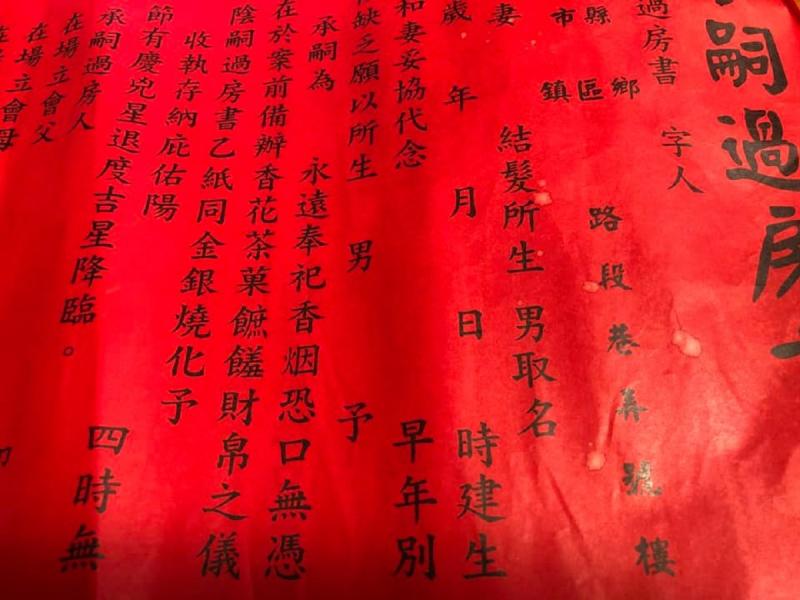 嗣過房
過房書 字人
市縣 鎮區鄉 路段巷弄號樓
妻 結髮所生 男取名
歲 年 月 日 時建生
和妻妥協代念 早年別
缺乏願以所生 男 予
承嗣為 永遠奉祀香烟恐口無憑
在於案前備辦香花茶菓䭉饈財帛之儀
陰嗣過房書乙紙同金銀燒化予
收執存納庇佑陽 四時無
節有慶兇星退度吉星降臨。
承嗣過房人
在場立會父
在場立會母